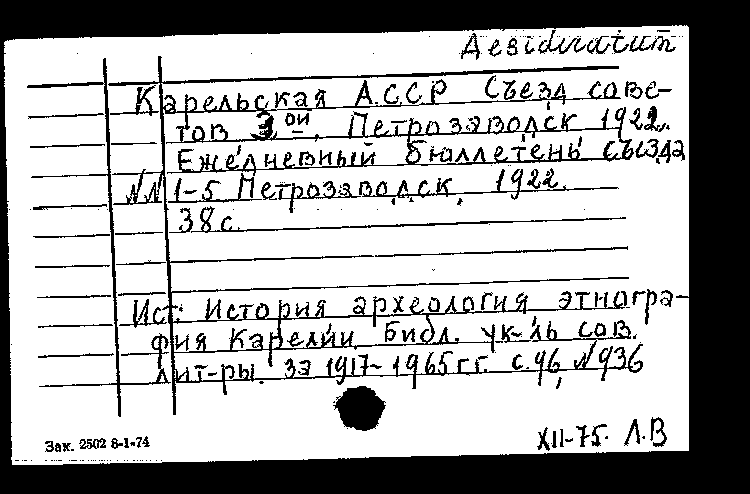 Desideratum
Карельская А.С.С.Р Съезд сове-
тов 3ой, Петрозаводск 1922.
Ежедневный бюллетень съезда
NN 1-5 Петрозаводск, 1922.
38 с.
Ист: История археология этногра-
фия Карелии. Библ. ук-ль сов.
лит-ры. за 1917-1965 г.г. с.96, N 936
Зак. 2502 8-1-74
XII-75. Л.В